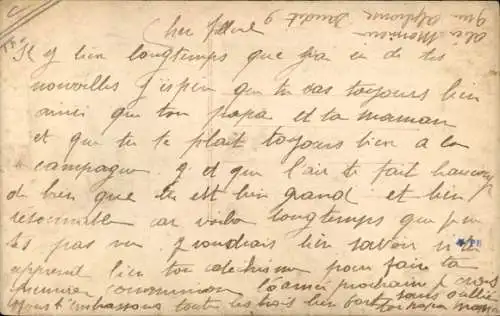 Cher
Il y bien longtemps que j'ai eu de tes
nouvelles j'espere que tu vas toujours bien
ainsi que ton papa et ta maman
et que tu te plait toujours bien a la
campagne et que l'air te fait beaucoup
de bien que tu est bien grand et bien
resonnable car voila longtemps que je ne
tes pas vu je voudrais bien savoir si tu
apprend bien ton catechisme pour faire ta
premiere communion l'année prochaine
nous t'embrassons toutes les trois bien fort sans oublier
ton papa maman
rue Alphonse Daudet 9